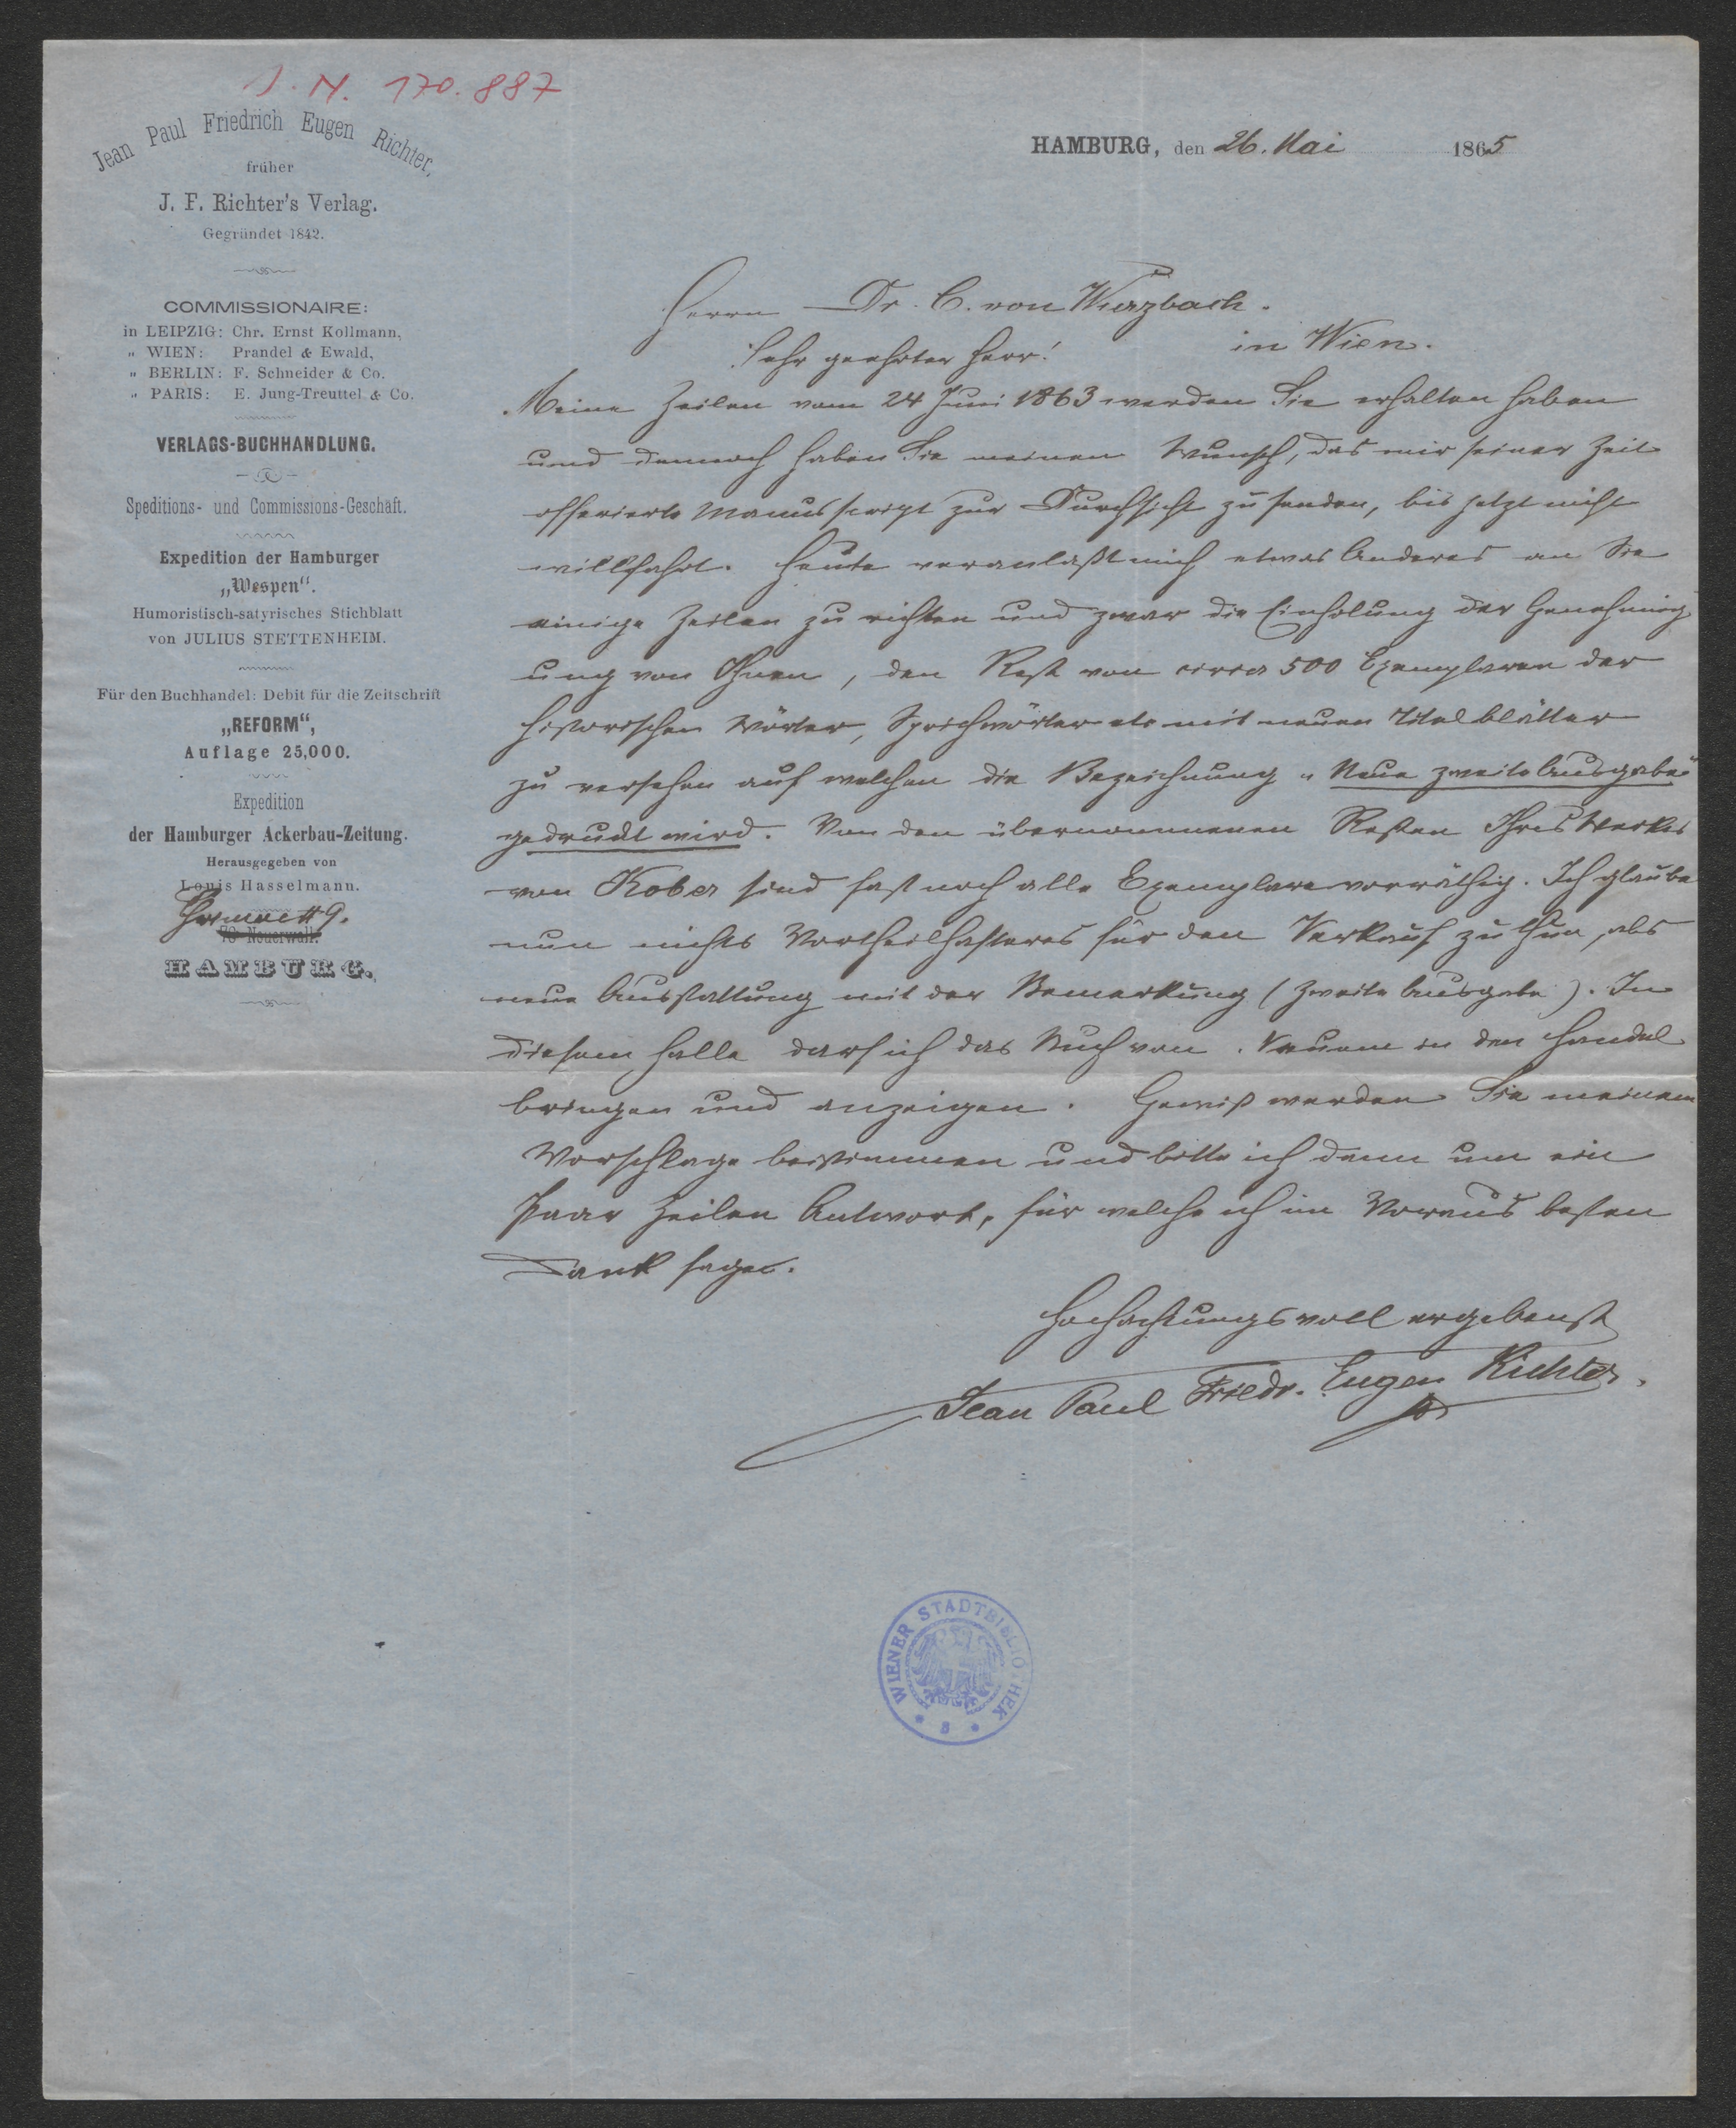 J. N. 170.887
Jean Paul Friedrich Eugen Richter,
früher
J. F. Richter's Verlag.
Gegründet 1842.
COMMISSIONAIRE:
in LEIPZIG: Chr. Ernst Kollmann,
„ WIEN: Prandel & Ewald,
„ BERLIN: F. Schneider & Co.
„ PARIS: E. Jung-Treuttel & Co.
VERLAGS-BUCHHANDLUNG.
Speditions- und Commissions-Geschäft.
Expedition der Hamburger
„Wespen“.
Humoristisch-satyrisches Stichblatt
von JULIUS STETTENHEIM.
Für den Buchhandel: Debit für die Zeitschrift
„REFORM“,
Auflage 25,000.
Expedition
der Hamburger Ackerbau-Zeitung.
Herausgegeben von
Louis Hasselmann.
9.
Neuerwall.
HAMBURG.
HAMBURG, den 26. Mai 1865
Herrn Dr. C. von Wurzbach.
in Wien.
Sehr geehrter Herr!
Meine Zeilen vom 24 Juni 1863 werden Sie erhalten haben
und dennoch haben Sie meinen Wunsch, das mir seiner Zeit
offerierte Manusscript zur Durchsicht zu senden, bis jetzt nicht
willfahrt. Heute veranlaßt mich etwas Anderes an Sie
einige Zeilen zu richten und zwar die Einholung der Genehmig
ung von Ihnen, den Rest von circa 500 Exemplaren der
historischen Wörter, Sprichwörter etc mit neuen Titelblätter
zu versehen auf welchen die Bezeichnung „Neue zweite Ausgabe“
gedruckt wird. Von den übernommenen Resten Ihres Werkes
von Kober sind fast noch alle Exemplare vorräthig. Ich glaube
nun nichts Vortheilhafteres für den Verkauf zu thun, als
neue Ausstattung mit der Bemerkung (Zweite Ausgabe). In
diesem Falle darf ich das Buch von Neuem in den Handel
bringen und anzeigen. Gewiß werden Sie meinem
Vorschlage beistimmen und bitte ich dann um ein
Paar Zeilen Antwort, für welche ich im Voraus besten
Dank sage.
Hochachtungsvoll ergebenst
Jean Paul Friedr. Eugen Richter.
WIENER STADTBIBLIOTHEK